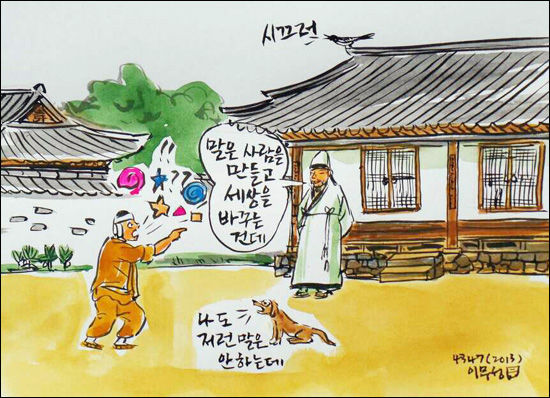 시끄러
말은 사람을
만들고
세상을
바꾸는
건데
??
나도
저런 말은
안하는데
4347(2013)
이무성